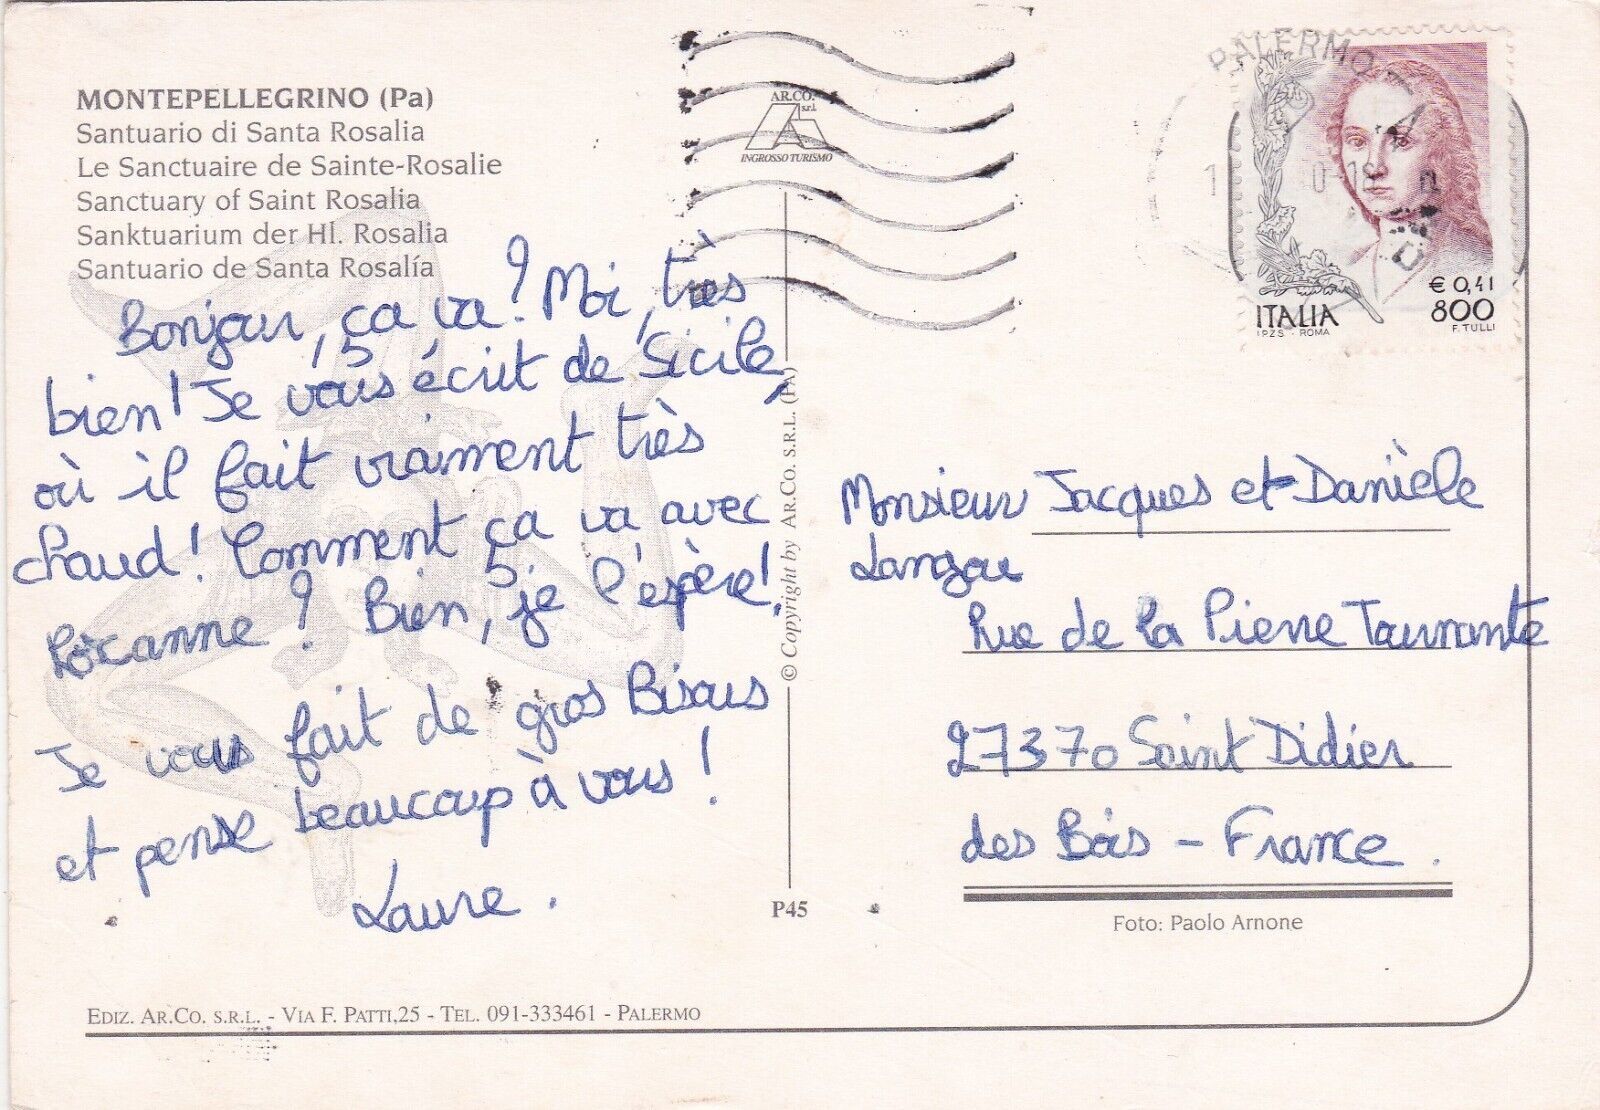 MONTEPELLEGRINO (Pa)
Santuario di Santa Rosalia
Le Sanctuaire de Sainte-Rosalie
Sanctuary of Saint Rosalia
Sanktuarium der Hl. Rosalia
Santuario de Santa Rosalía
Bonjour, ça va? Moi, très
bien! Je vous écrit de Sicile,
où il fait vraiment très
chaud! Comment ça va avec
? Bien, je l'espère!
Je vous fait de gros Bisous
et pense beaucoup à vous!
Laure.
AR.CO.
s.r.l.
INGROSSO TURISMO
© Copyright by AR.CO. S.R.L. (PA)
P45
PALERMO
€ 0,41
800
ITALIA
I.P.Z.S. - ROMA
F. TULLI
Monsieur Jacques et Danièle
Rue de la Pierre Tournante
27370 Saint Didier
des Bois - France.
Foto: Paolo Arnone
EDIZ. AR.CO. S.R.L. - VIA F. PATTI,25 - TEL. 091-333461 - PALERMO